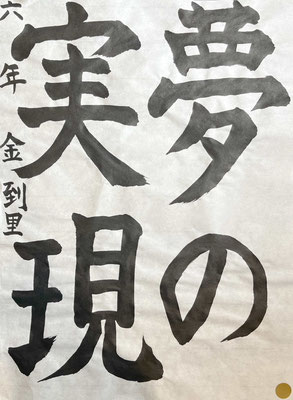 夢の
実現
六年 金到里